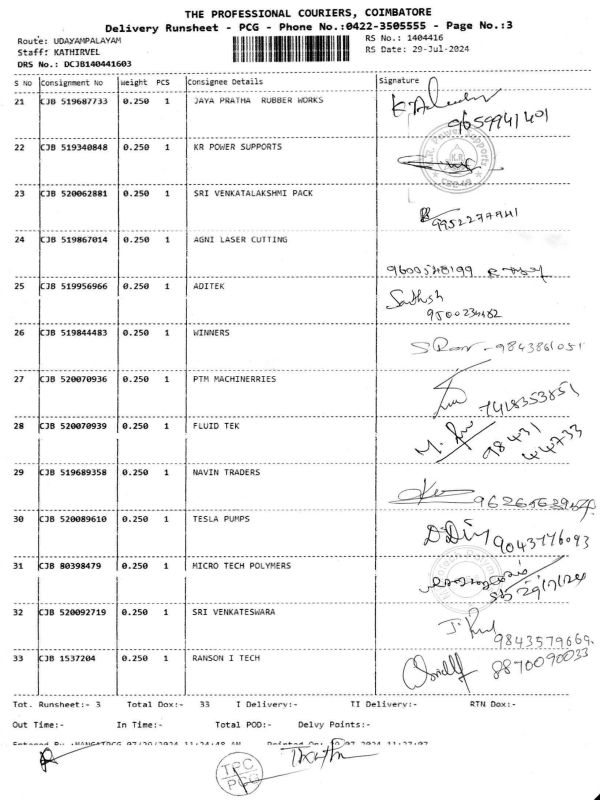 THE PROFESSIONAL COURIERS, COIMBATORE
Delivery Runsheet - PCG - Phone No.:0422-3505555 - Page No.:3
Route: UDAYAMPALAYAM RS No.: 1404416
Staff: KATHIRVEL RS Date: 29-Jul-2024
DRS No.: DCJB140441603
S No Consignment No Weight PCS Consignee Details Signature
21 CJB 519687733 0.250 1 JAYA PRATHA RUBBER WORKS
9659941401
22 CJB 519340848 0.250 1 KR POWER SUPPORTS
K.R. Power Supports
23 CJB 520062881 0.250 1 SRI VENKATALAKSHMI PACK
9952277941
24 CJB 519867014 0.250 1 AGNI LASER CUTTING
25 CJB 519956966 0.250 1 ADITEK
Sathish
26 CJB 519844483 0.250 1 WINNERS
9843861051
27 CJB 520070936 0.250 1 PTM MACHINERRIES
7418353851
28 CJB 520070939 0.250 1 FLUID TEK
98431
44733
29 CJB 519689358 0.250 1 NAVIN TRADERS
30 CJB 520089610 0.250 1 TESLA PUMPS
31 CJB 80398479 0.250 1 MICRO TECH POLYMERS
32 CJB 520092719 0.250 1 SRI VENKATESWARA
9843579669
33 CJB 1537204 0.250 1 RANSON I TECH
8870090033
Tot. Runsheet:- 3 Total Dox:- 33 I Delivery:- II Delivery:- RTN Dox:-
Out Time:- In Time:- Total POD:- Delvy Points:-
TPC
PCG